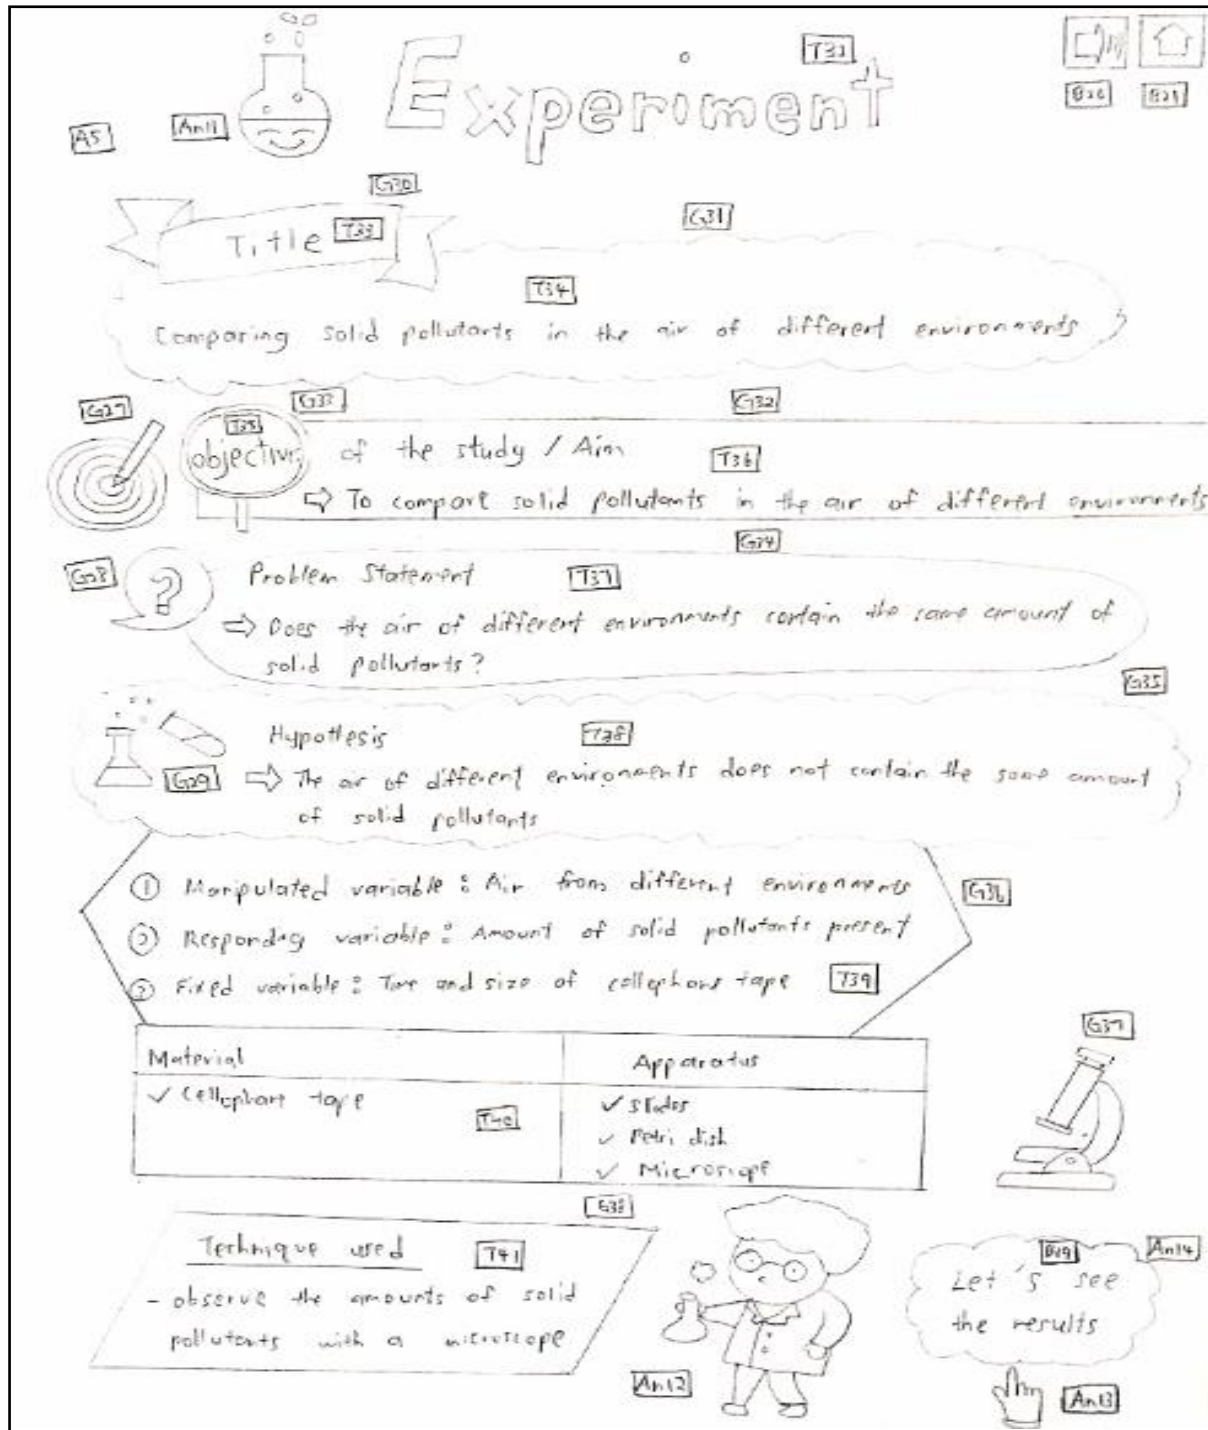 Experiment
A5
An11
G30
Title T33
G31
T34
Comparing solid pollutants in the air of different environments
G27
G33
G32
objective of the study / Aim
T36
⇨ To compare solid pollutants in the air of different environments
G34
G28
?
Problem Statement T37
⇨ Does the air of different environments contain the same amount of
solid pollutants?
G35
Hypothesis T38
G29 ⇨ The air of different environments does not contain the same amount
of solid pollutants
① Manipulated variable : Air from different environments
G36
Responding variable : Amount of solid pollutants present
Fixed variable : Time and size of cellophane tape T39
G37
Material Apparatus
✓ Cellophane tape T40 ✓ Slides
✓ Petri dish
✓ Microscope
G38
Technique used T41
- observe the amounts of solid
pollutants with a microscope
B29 An14
Let's see
the results
An12
An13